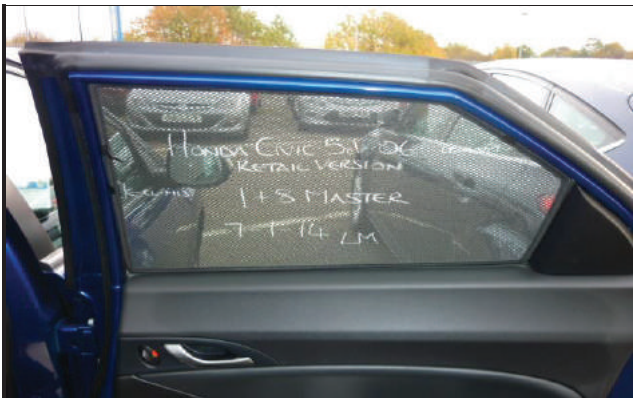 HONDA CIVIC 5
RETAIL VERSION
1+8 MASTER
7 1 14 LM